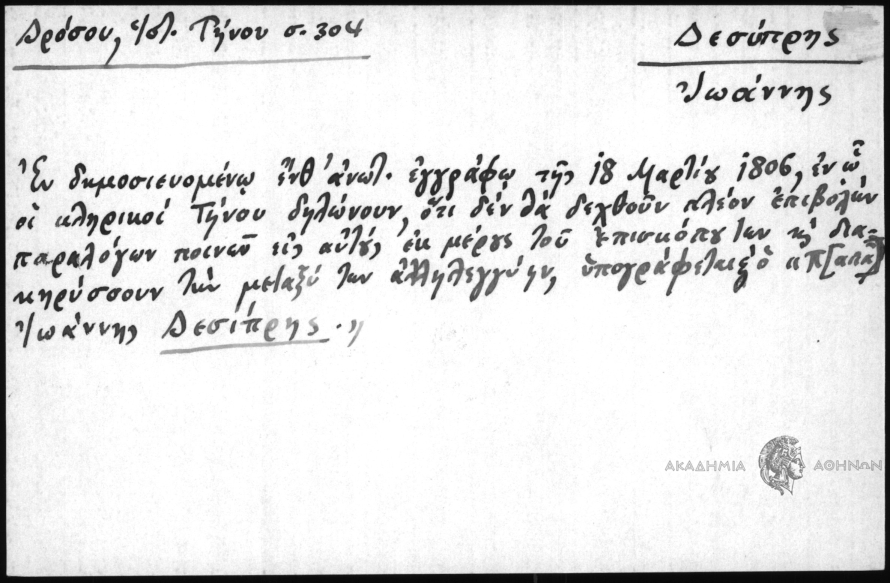 Δρόσου, Ἱστ. Τήνου σ. 304
Δεσίπρης
Ἰωάννης
Ἐν δημοσιευομένῳ ἔνθ' ἀνωτ. ἐγγράφῳ τῆς 18 Μαρτίου 1806, ἐν ᾧ
οἱ κληρικοί Τήνου δηλώνουν, ὅτι δέν θά δεχθοῦν πλέον ἐπιβολήν
παραλόγων ποινῶν εἰς αὐτούς ἐκ μέρους τοῦ ἐπισκόπου των κ̀ δια-
κηρύσσουν τήν μεταξύ των ἀλληλεγγύην, ὑπογράφεται ὁ
Ἰωάννης Δεσίπρης.»
ΑΚΑΔΗΜΙΑ ΑΘΗΝΩΝ